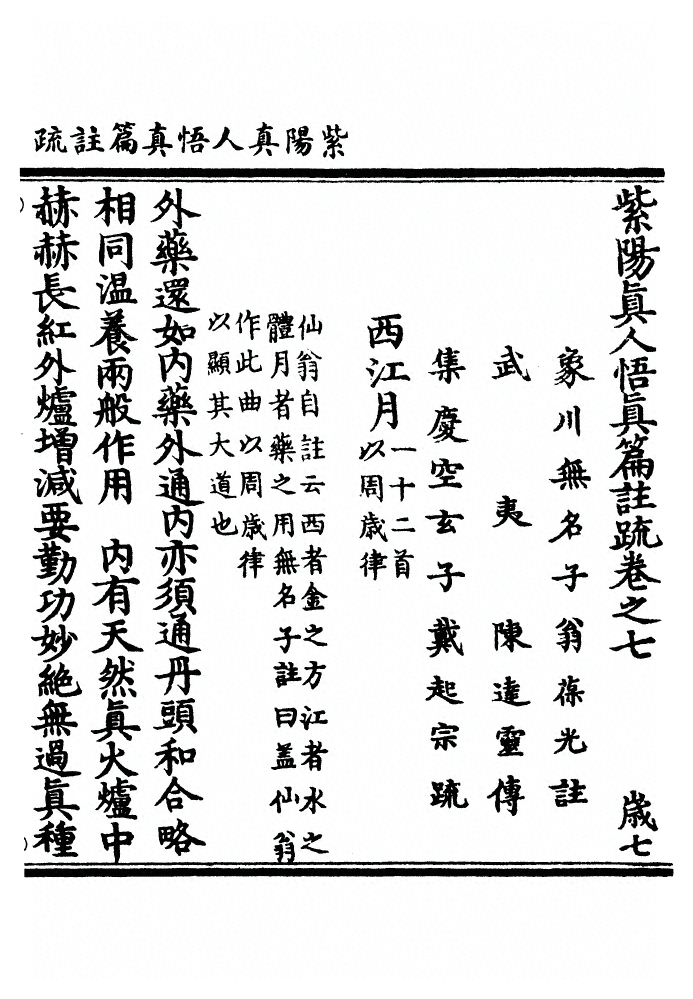 紫陽真人悟真篇註疏
紫陽眞人悟眞篇註䟽卷之七 歲七
象川無名子翁葆光註
武夷陳達靈傳
集慶空玄子戴起宗䟽
西江月一十二首
以周歲律
仙翁自註云西者金之方江者水之
體月者藥之用無名子註曰蓋仙翁
作此曲以周歲律
以顯其大道也
外藥還如内藥外通内亦須通丹頭和合略
相同温養兩般作用 内有天然眞火爐中
赫赫長紅外爐增減要勤功妙絶無過眞種